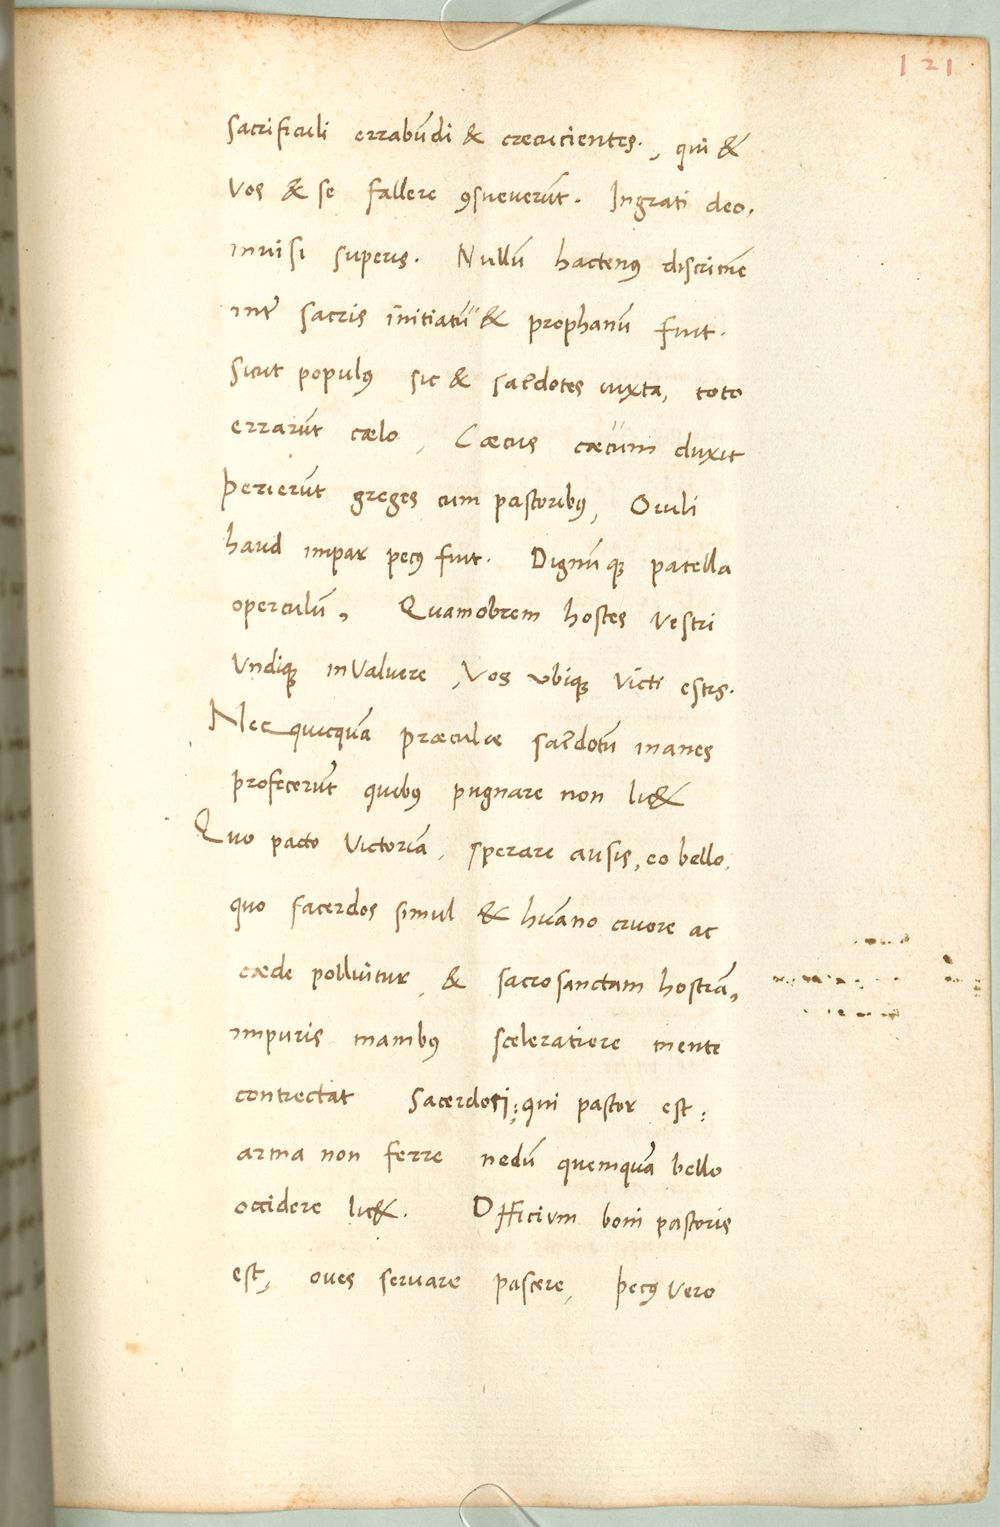 121
sacrificuli errabūdi & cæcucientes., qui &
vos & se fallere ꝯsueuerūt. Ingrati deo.
inuisi superis. Nullū hactenꝰ discrimē
int̃ sacris initiatū & prophanū fuit.
Sicut populꝰ sic & sac̃dotes iuxta, toto
errarūt cælo, Cæcus cæcum duxit
perierūt greges cum pastoribꝰ, Ouili
haud impar pecꝰ fuit. Dignūqꝫ patella
operculū, Quamobrem hostes vestri
vndiqꝫ inualuere, vos vbiqꝫ victi estis.
Nec quicquā præculæ sac̃dotū inanes
profecerūt quibꝰ pugnare non lic&
Quo pacto victoriā, sperare ausis, eo bello,
quo sacerdos simul & huāno cruore ac
cæde polluitur, & sacrosanctam hostiā,
impuris manibꝰ sceleratiore mente
contrectat Sacerdoti; qui pastor est;
arma non ferre nedū quemquā bello
occidere lic&. Officium boni pastoris
est, oues seruare pascere, pecꝰ vero